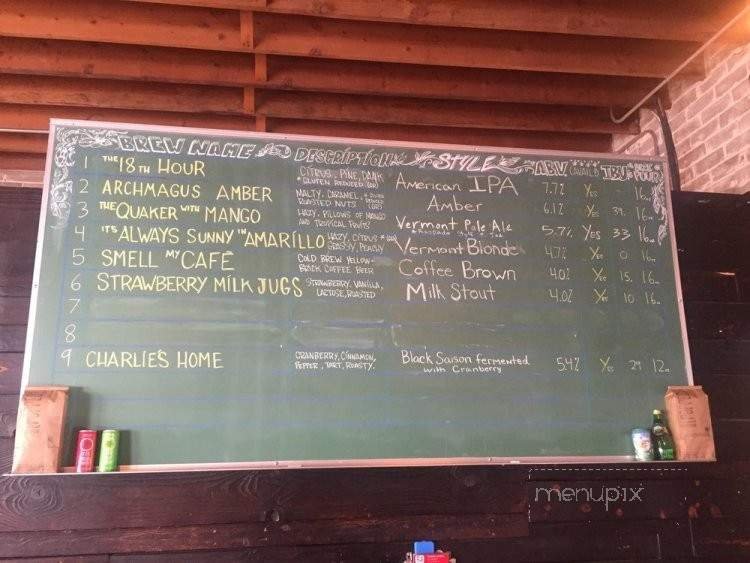 BREW NAME DESCRIPTION STYLE ABV IBU POUR
1 THE 18TH HOUR CITRUS, PINE, DANK American IPA 7.7% Yes 16oz
* GLUTEN REDUCED (GR)
2 ARCHMAGUS AMBER MALTY, CARAMEL, Amber 6.1% Yes 16oz
ROASTED NUTS
3 THE QUAKER WITH MANGO HAZY, PILLOWS OF MANGO Vermont Pale Ale 5.7% Yes 33 16oz
AND TROPICAL FRUITS
4 IT'S ALWAYS SUNNY IN AMARILLO HAZY, CITRUS Vermont Blonde 4.7% Yes 0 16oz
GRASSY, PEACHY
5 SMELL MY CAFÉ COLD BREW YELLOW- Coffee Brown 4.0% Yes 15 16oz
BRICK COFFEE BEER
6 STRAWBERRY MILK JUGS STRAWBERRY, VANILLA, Milk Stout 4.0% Yes 10 16oz
LACTOSE, ROASTED
7
8
9 CHARLIE'S HOME CRANBERRY, CINNAMON, Black Saison fermented 5.4% Yes 29 12oz
PEPPER, TART, ROASTY. with Cranberry
menupix